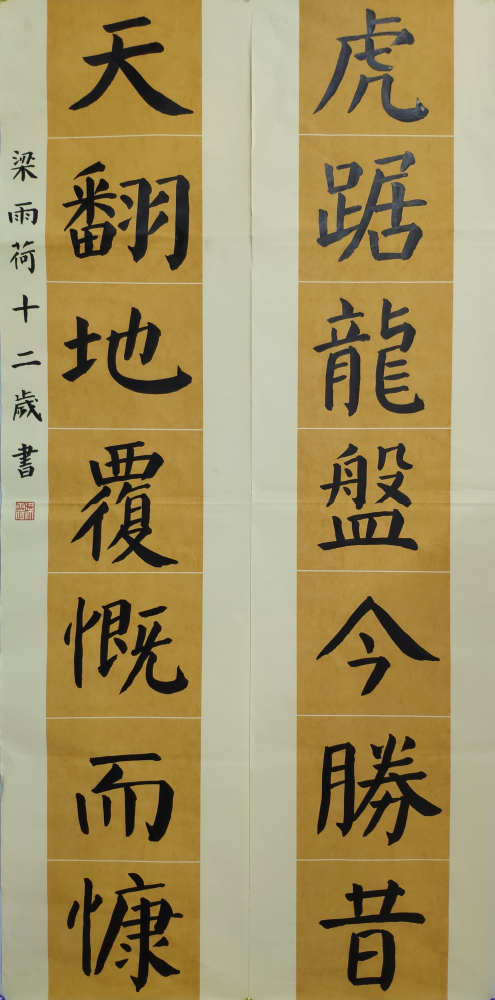 虎踞龍盤今勝昔
天翻地覆慨而慷
梁雨荷十二歲書